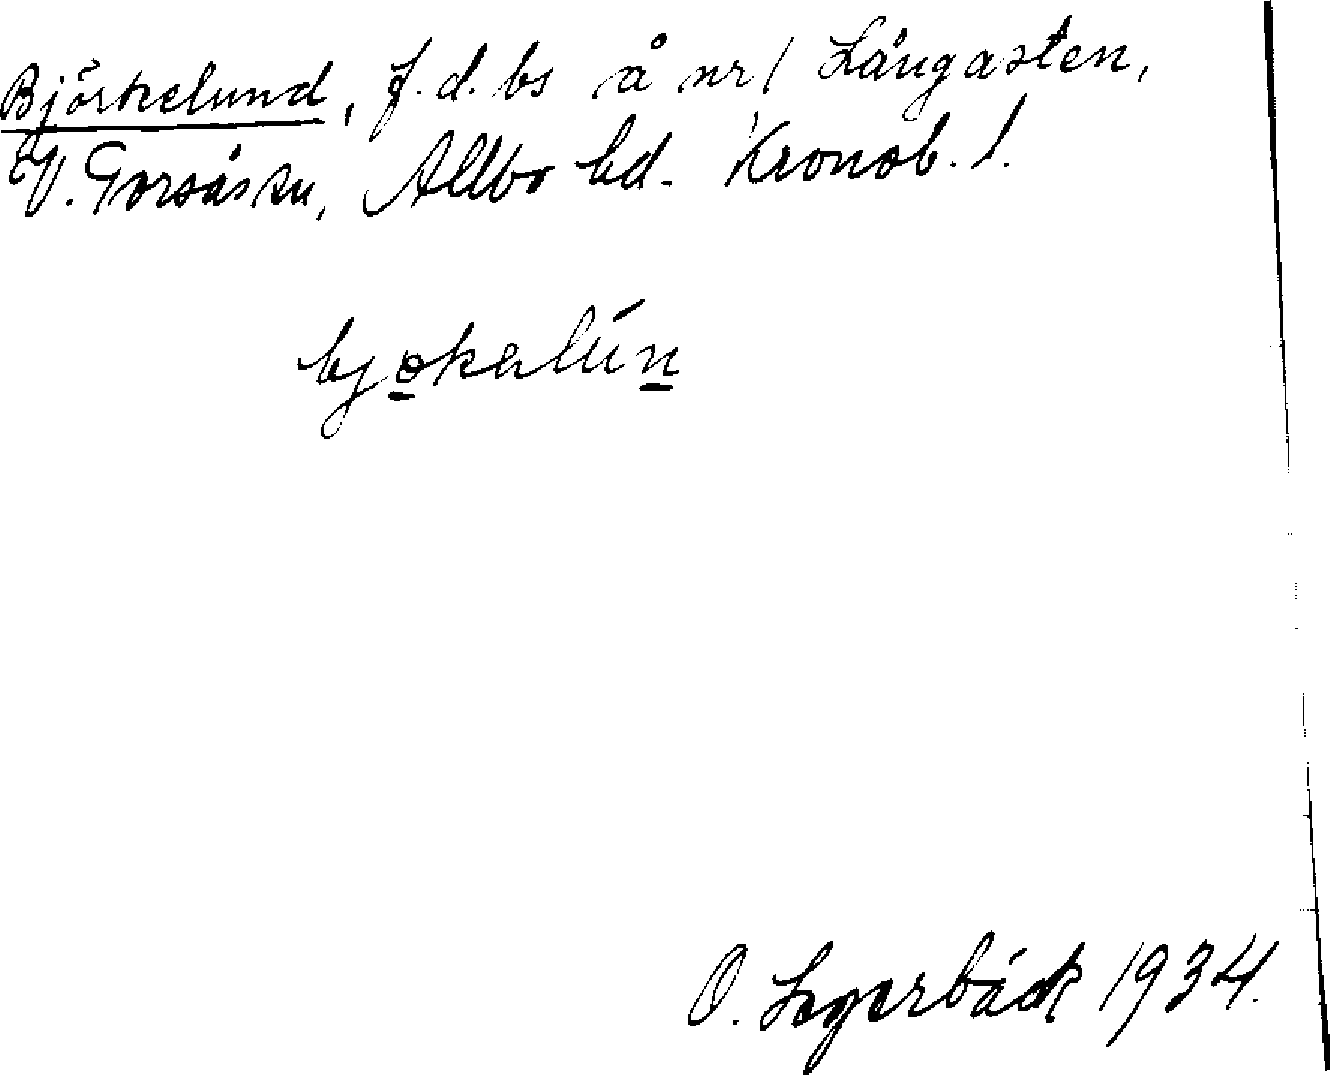 Björkelund, f.d. bs å nr 1 Långasten,
V. Torsås sn, Allbo hd. Kronob. l.
bjokalún
O. Lagerbäck 1934.